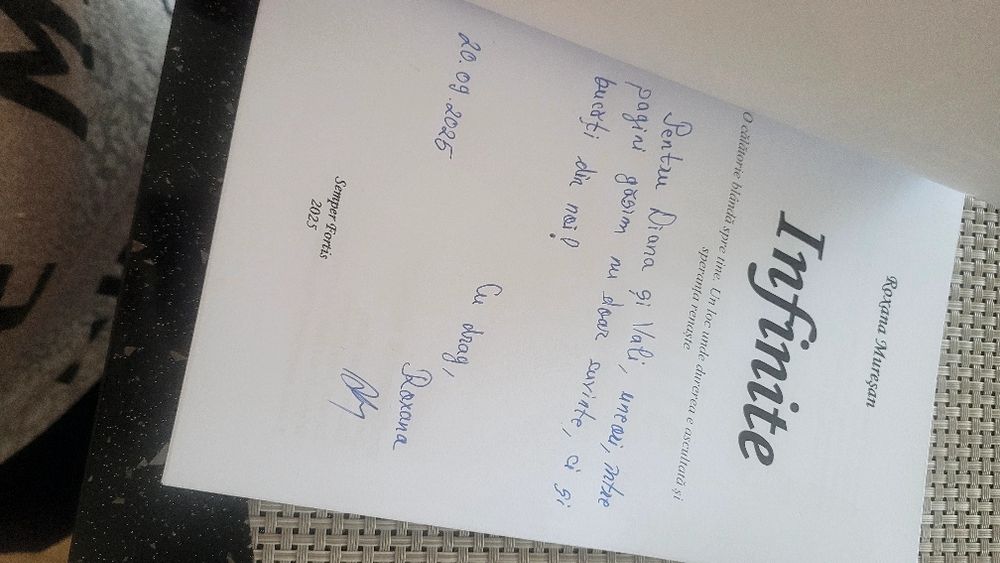 Roxana Mureșan
Infinite
O călătorie blândă spre tine. Un loc unde durerea e ascultată și
speranța renaște
Pentru Diana și Vali, uneori, între
pagini găsim nu doar cuvinte, ci și
bucăți din noi!
Cu drag,
Roxana
20.09.2025
Semper Fortis
2025